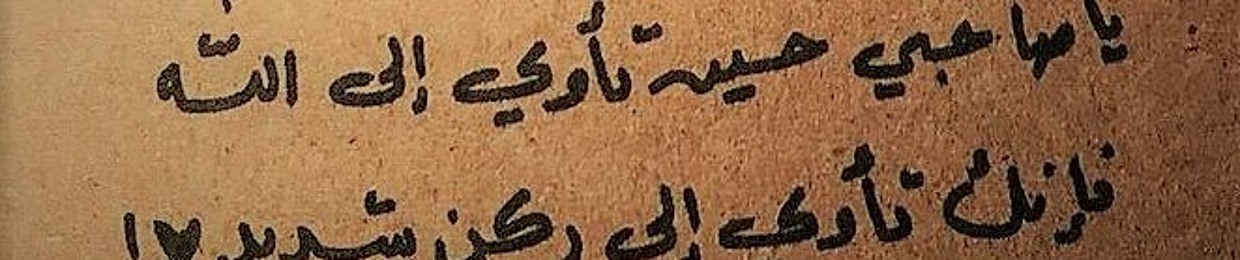 يا صاحبي حين تأوي إلى الله
فإنك تأوى إلى ركن شديد ♥!